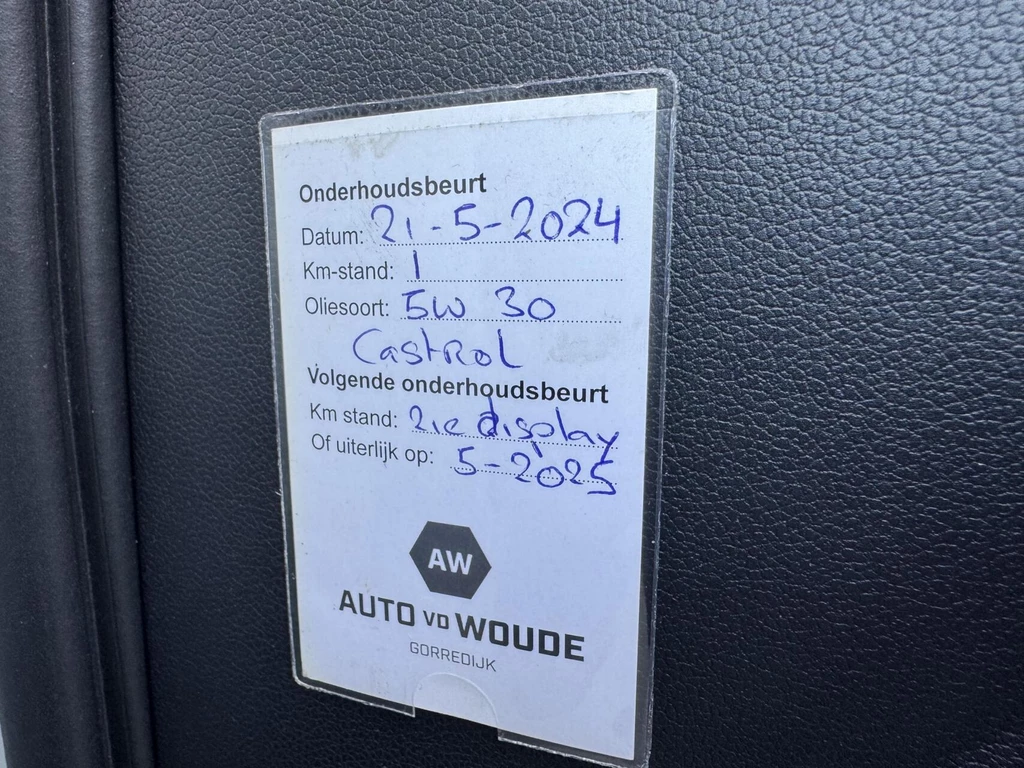 Onderhoudsbeurt
Datum: 21-5-2024
Km-stand: 1
Oliesoort: 5W 30
Castrol
Volgende onderhoudsbeurt
Km stand: zie display
Of uiterlijk op: 5-2025
AW
AUTO VD WOUDE
GORREDIJK